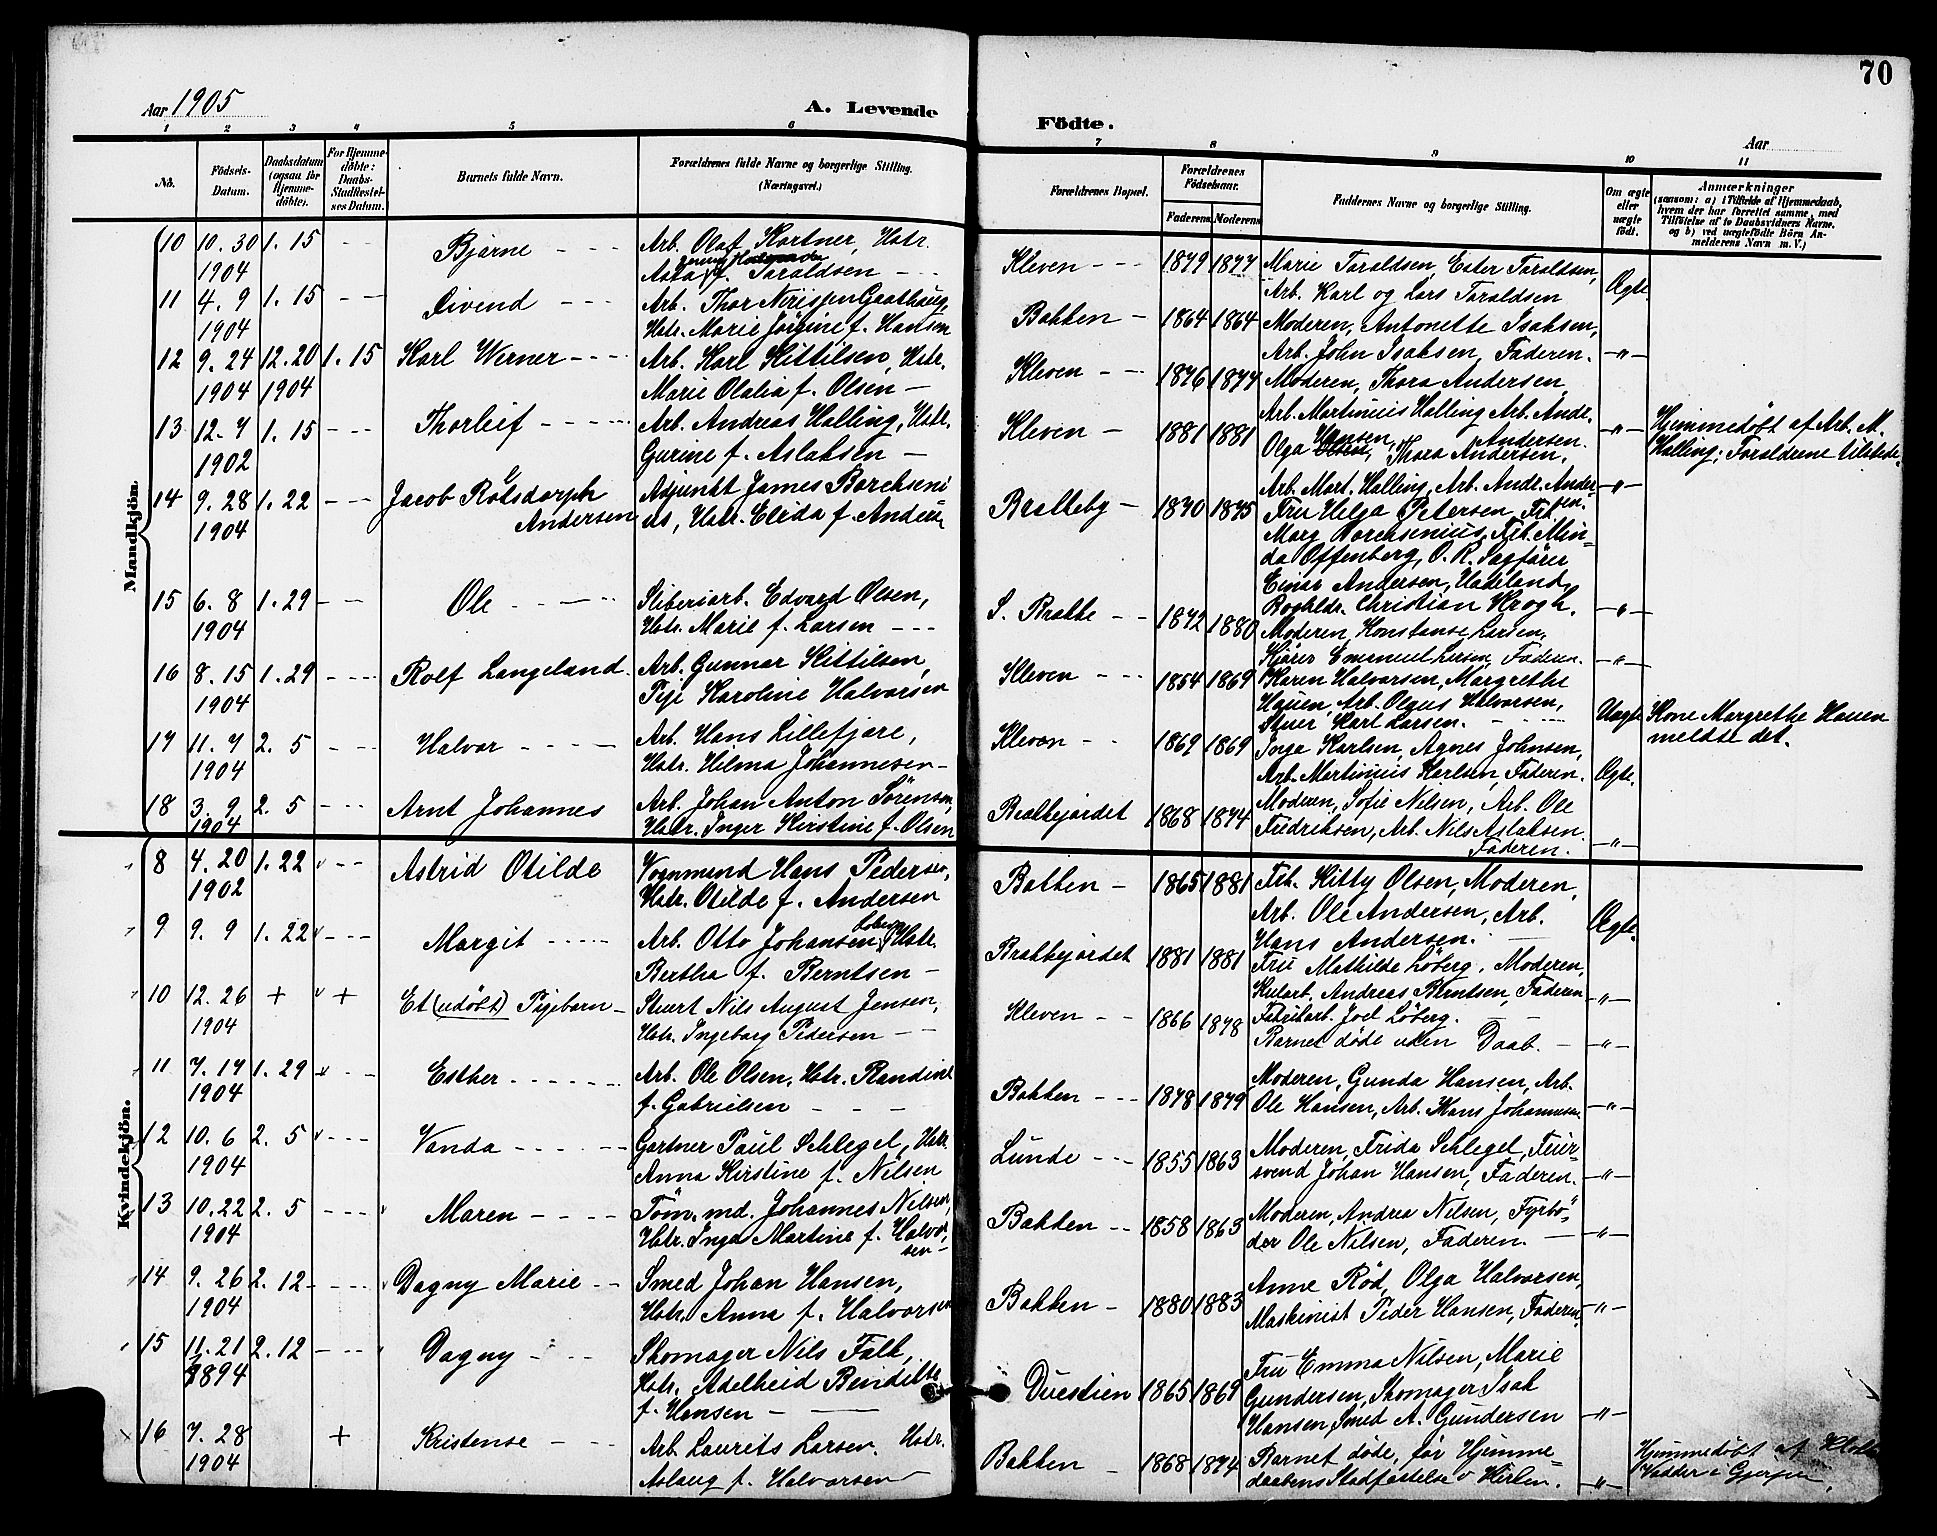 70
Aar 1905
A. Levende Födte.
Aar
1 2 3 4 5 6 7 8 9 10 11
No.
Födsels-Datum.
Daabsdatum (ogsaa for Hjemme-döbte).
For Hjemme-döbte: Daabs-Stadfæstel-ses Datum.
Barnets fulde Navn.
Forældrenes fulde Navne og borgerlige Stilling. (Næringsvei.)
Forældrenes Bopæl.
Forældrenes Födselsaar.
Faderens. Moderens.
Faddernes Navne og borgerlige Stilling.
Om ægte eller uægte födt.
Anmærkninger
(saasom: a) i Tilfælde af Hjemmedaab, hvem der har forrettet samme, med Tilföielse af to Daabsvidners Navne, og b) ved uægtefödte Börn Anmelderens Navn m. V.)
Mandkjön.
10 10. 30 1904 1. 15 Bjarne Arb. Olaf Kortner, Hstr.
Asta f. Taraldsen
Kleven 1879 1877 Marie Taraldsen, Ester Taraldsen,
Arb. Karl og Lars Taraldsen Ægte
11 4. 9 1904 1. 15 Eivind Arb. Thor Nirisen Gaathaug,
Hstr. Marie Jörgine f. Hansen
Bakken 1864 1864 Moderen, Antonette Isaksen,
Arb. John Isaksen, Faderen. -"-
12 9. 24 1904 12. 20 1904 1. 15 Karl Werner Arb. Karl Kittilsen, Hstr.
Marie Olalia f. Olsen
Kleven 1876 1877 Moderen, Thora Andersen,
Arb. Martinius Halling Arb. Andr. Andersen. -"-
13 12. 7 1902 1. 15 Thorleif Arb. Andreas Halling, Hstr.
Gurine f. Aslaksen
Kleven 1881 1881 Olga Hansen, Thora Andersen,
Arb. Mart. Halling, Arb. Andr. Andersen. -"-
Hjemmedöbt af Arb. M.
Halling; Forældrene tilstede.
14 9. 28 1904 1. 22 Jacob Rolsdorph
Andersen
Adjunkt James Borchsenius, Hstr. Elida f. Andersen
Brekkeby 1870 1875 Fru Helga Petersen, Frk.
Marg. Borchsenius, Frk. Minda Offenberg, O. R. Sagförer
Einar Andersen, Hadeland,
Boghldr. Christian Krogh. -"-
15 6. 8 1904 1. 29 Ole Sliberiarb. Edvard Olsen,
Hstr. Marie f. Larsen
S. Brekke 1872 1880 Moderen, Konstanse Larsen,
Kjörer Emanuel Larsen, Faderen. -"-
16 8. 15 1904 1. 29 Rolf Langeland Arb. Gunnar Kittilsen,
Pige Karoline Halvorsen
Kleven 1854 1869 Karen Halvorsen, Margrethe
Hauen, Arb. Olaus Halvorsen,
Stuer Karl Larsen. Uægte
Kone Margrethe Hauen
meldte det.
17 11. 7 1904 2. 5 Halvor Arb. Hans Lillefjære,
Hstr. Hilma Johannesen
Kleven 1869 1869 Inga Karlsen, Agnes Johnsen,
Arb. Martinius Karlsen, Faderen. Ægte.
18 3. 9 1904 2. 5 Arnt Johannes Arb. Johan Anton Sörensen,
Hstr. Inger Kirstine f. Olsen
Brekkejordet 1868 1874 Moderen, Sofie Nilsen, Arb. Ole
Fredriksen, Arb. Nils Aslaksen.
Faderen. -"-
Kvindekjön.
8 4. 20 1902 1. 22 Astrid Otilde Vognmand Hans Pedersen,
Hstr. Otilde f. Andersen
Bakken 1865 1881 Frk. Kitty Olsen, Moderen,
Arb. Ole Andersen, Arb.
Hans Andersen. Ægte.
9 9. 9 1. 22 Margit Arb. Otto Johansen Löberg, Hstr.
Bertha f. Berntsen
Brekkejordet 1881 1881 Fru Mathilde Löberg. Moderen,
Kularb. Andreas Berntsen, Faderen
Fabrikarb. Joel Löberg. -"-
10 12. 26 1904 + + Et (udöbt) Pigebarn Stuert Nils August Jensen,
Hstr. Ingeborg Pedersen
Kleven 1866 1878 Barnet döde uden Daab. -"-
11 7. 17 1904 1. 29 Esther Arb. Ole Olsen, Hstr. Randine
f. Gabrielsen
Bakken 1878 1879 Moderen, Gunda Hansen, Arb.
Ole Hansen, Arb. Hans Johannesen. -"-
12 10. 6 1904 2. 5 Vanda Gartner Paul Schlegel, Hstr.
Anna Kirstine f. Nilsen
Lunde 1855 1863 Moderen, Frida Schlegel, Feiersvend Johan Hansen, Faderen. -"-
13 10. 22 1904 2. 5 Maren Töm.md. Johannes Nilsen,
Hstr. Inga Martine f. Halvorsen
Bakken 1858 1863 Moderen, Andrea Nilsen, Fyrböder Ole Nilsen, Faderen. -"-
14 9. 26 1904 2. 12 Dagny Marie Smed Johan Hansen,
Hstr. Anna f. Halvorsen
Bakken 1880 1883 Anne Röd, Olga Halvorsen,
Maskinist Peder Hansen, Faderen. -"-
15 11. 21 1894 2. 12 Dagny Skomager Nils Falk,
Hstr. Adelheid Bendikte
f. Hansen
Duestien 1865 1869 Fru Emma Nilsen, Marie
Gundersen, Skomager Isak
Hansen, Smed A. Gundersen -"-
16 7. 28 1904 + Kristense Arb. Laurits Larsen. Hstr.
Aslaug f. Halvorsen
Bakken 1868 1874 Barnet döde, för Hjemmedaabens Stadfæstelse i Kirken. -"-
Hjemmedöbt af
i Gjerpen.